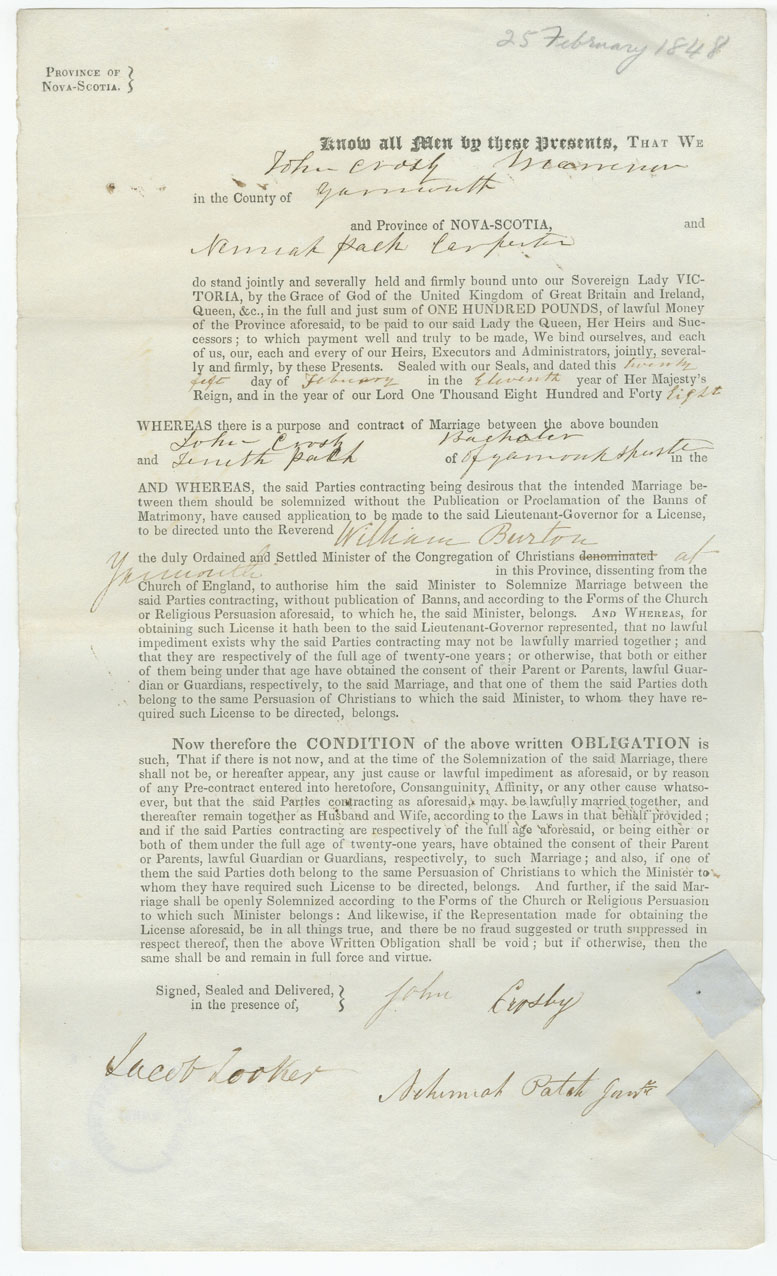 25 February 1848
PROVINCE OF
NOVA-SCOTIA.
Know all Men by these Presents, THAT WE
John Crosby Marriner
in the County of Yarmouth
and Province of NOVA-SCOTIA, and
Nemiah pach Carpenter
do stand jointly and severally held and firmly bound unto our Sovereign Lady VIC-
TORIA, by the Grace of God of the United Kingdom of Great Britain and Ireland,
Queen, &c., in the full and just sum of ONE HUNDRED POUNDS, of lawful Money
of the Province aforesaid, to be paid to our said Lady the Queen, Her Heirs and Suc-
cessors; to which payment well and truly to be made, We bind ourselves, and each
of us, our, each and every of our Heirs, Executors and Administrators, jointly, several-
ly and firmly, by these Presents. Sealed with our Seals, and dated this twenty
day of February in the Eleventh year of Her Majesty's
Reign, and in the year of our Lord One Thousand Eight Hundred and Forty Eight
WHEREAS there is a purpose and contract of Marriage between the above bounden
John Crosby Bachaler
and pach of in the
AND WHEREAS, the said Parties contracting being desirous that the intended Marriage be-
tween them should be solemnized without the Publication or Proclamation of the Banns of
Matrimony, have caused application to be made to the said Lieutenant-Governor for a License,
to be directed unto the Reverend William Burton
the duly Ordained and Settled Minister of the Congregation of Christians denominated at
Yarmouth in this Province, dissenting from the
Church of England, to authorise him the said Minister to Solemnize Marriage between the
said Parties contracting, without publication of Banns, and according to the Forms of the Church
or Religious Persuasion aforesaid, to which he, the said Minister, belongs. AND WHEREAS, for
obtaining such License it hath been to the said Lieutenant-Governor represented, that no lawful
impediment exists why the said Parties contracting may not be lawfully married together; and
that they are respectively of the full age of twenty-one years; or otherwise, that both or either
of them being under that age have obtained the consent of their Parent or Parents, lawful Guar-
dian or Guardians, respectively, to the said Marriage, and that one of them the said Parties doth
belong to the same Persuasion of Christians to which the said Minister, to whom they have re-
quired such License to be directed, belongs.
Now therefore the CONDITION of the above written OBLIGATION is
such, That if there is not now, and at the time of the Solemnization of the said Marriage, there
shall not be, or hereafter appear, any just cause or lawful impediment as aforesaid, or by reason
of any Pre-contract entered into heretofore, Consanguinity, Affinity, or any other cause whatso-
ever, but that the said Parties contracting as aforesaid, may be lawfully married together, and
thereafter remain together as Husband and Wife, according to the Laws in that behalf provided;
and if the said Parties contracting are respectively of the full age aforesaid, or being either or
both of them under the full age of twenty-one years, have obtained the consent of their Parent
or Parents, lawful Guardian or Guardians, respectively, to such Marriage; and also, if one of
them the said Parties doth belong to the same Persuasion of Christians to which the Minister to
whom they have required such License to be directed, belongs. And further, if the said Mar-
riage shall be openly Solemnized according to the Forms of the Church or Religious Persuasion
to which such Minister belongs: And likewise, if the Representation made for obtaining the
License aforesaid, be in all things true, and there be no fraud suggested or truth suppressed in
respect thereof, then the above Written Obligation shall be void; but if otherwise, then the
same shall be and remain in full force and virtue.
Signed, Sealed and Delivered,
in the presence of,
John Crosby
Jacob Tooker
Nehemiah Patch Junr